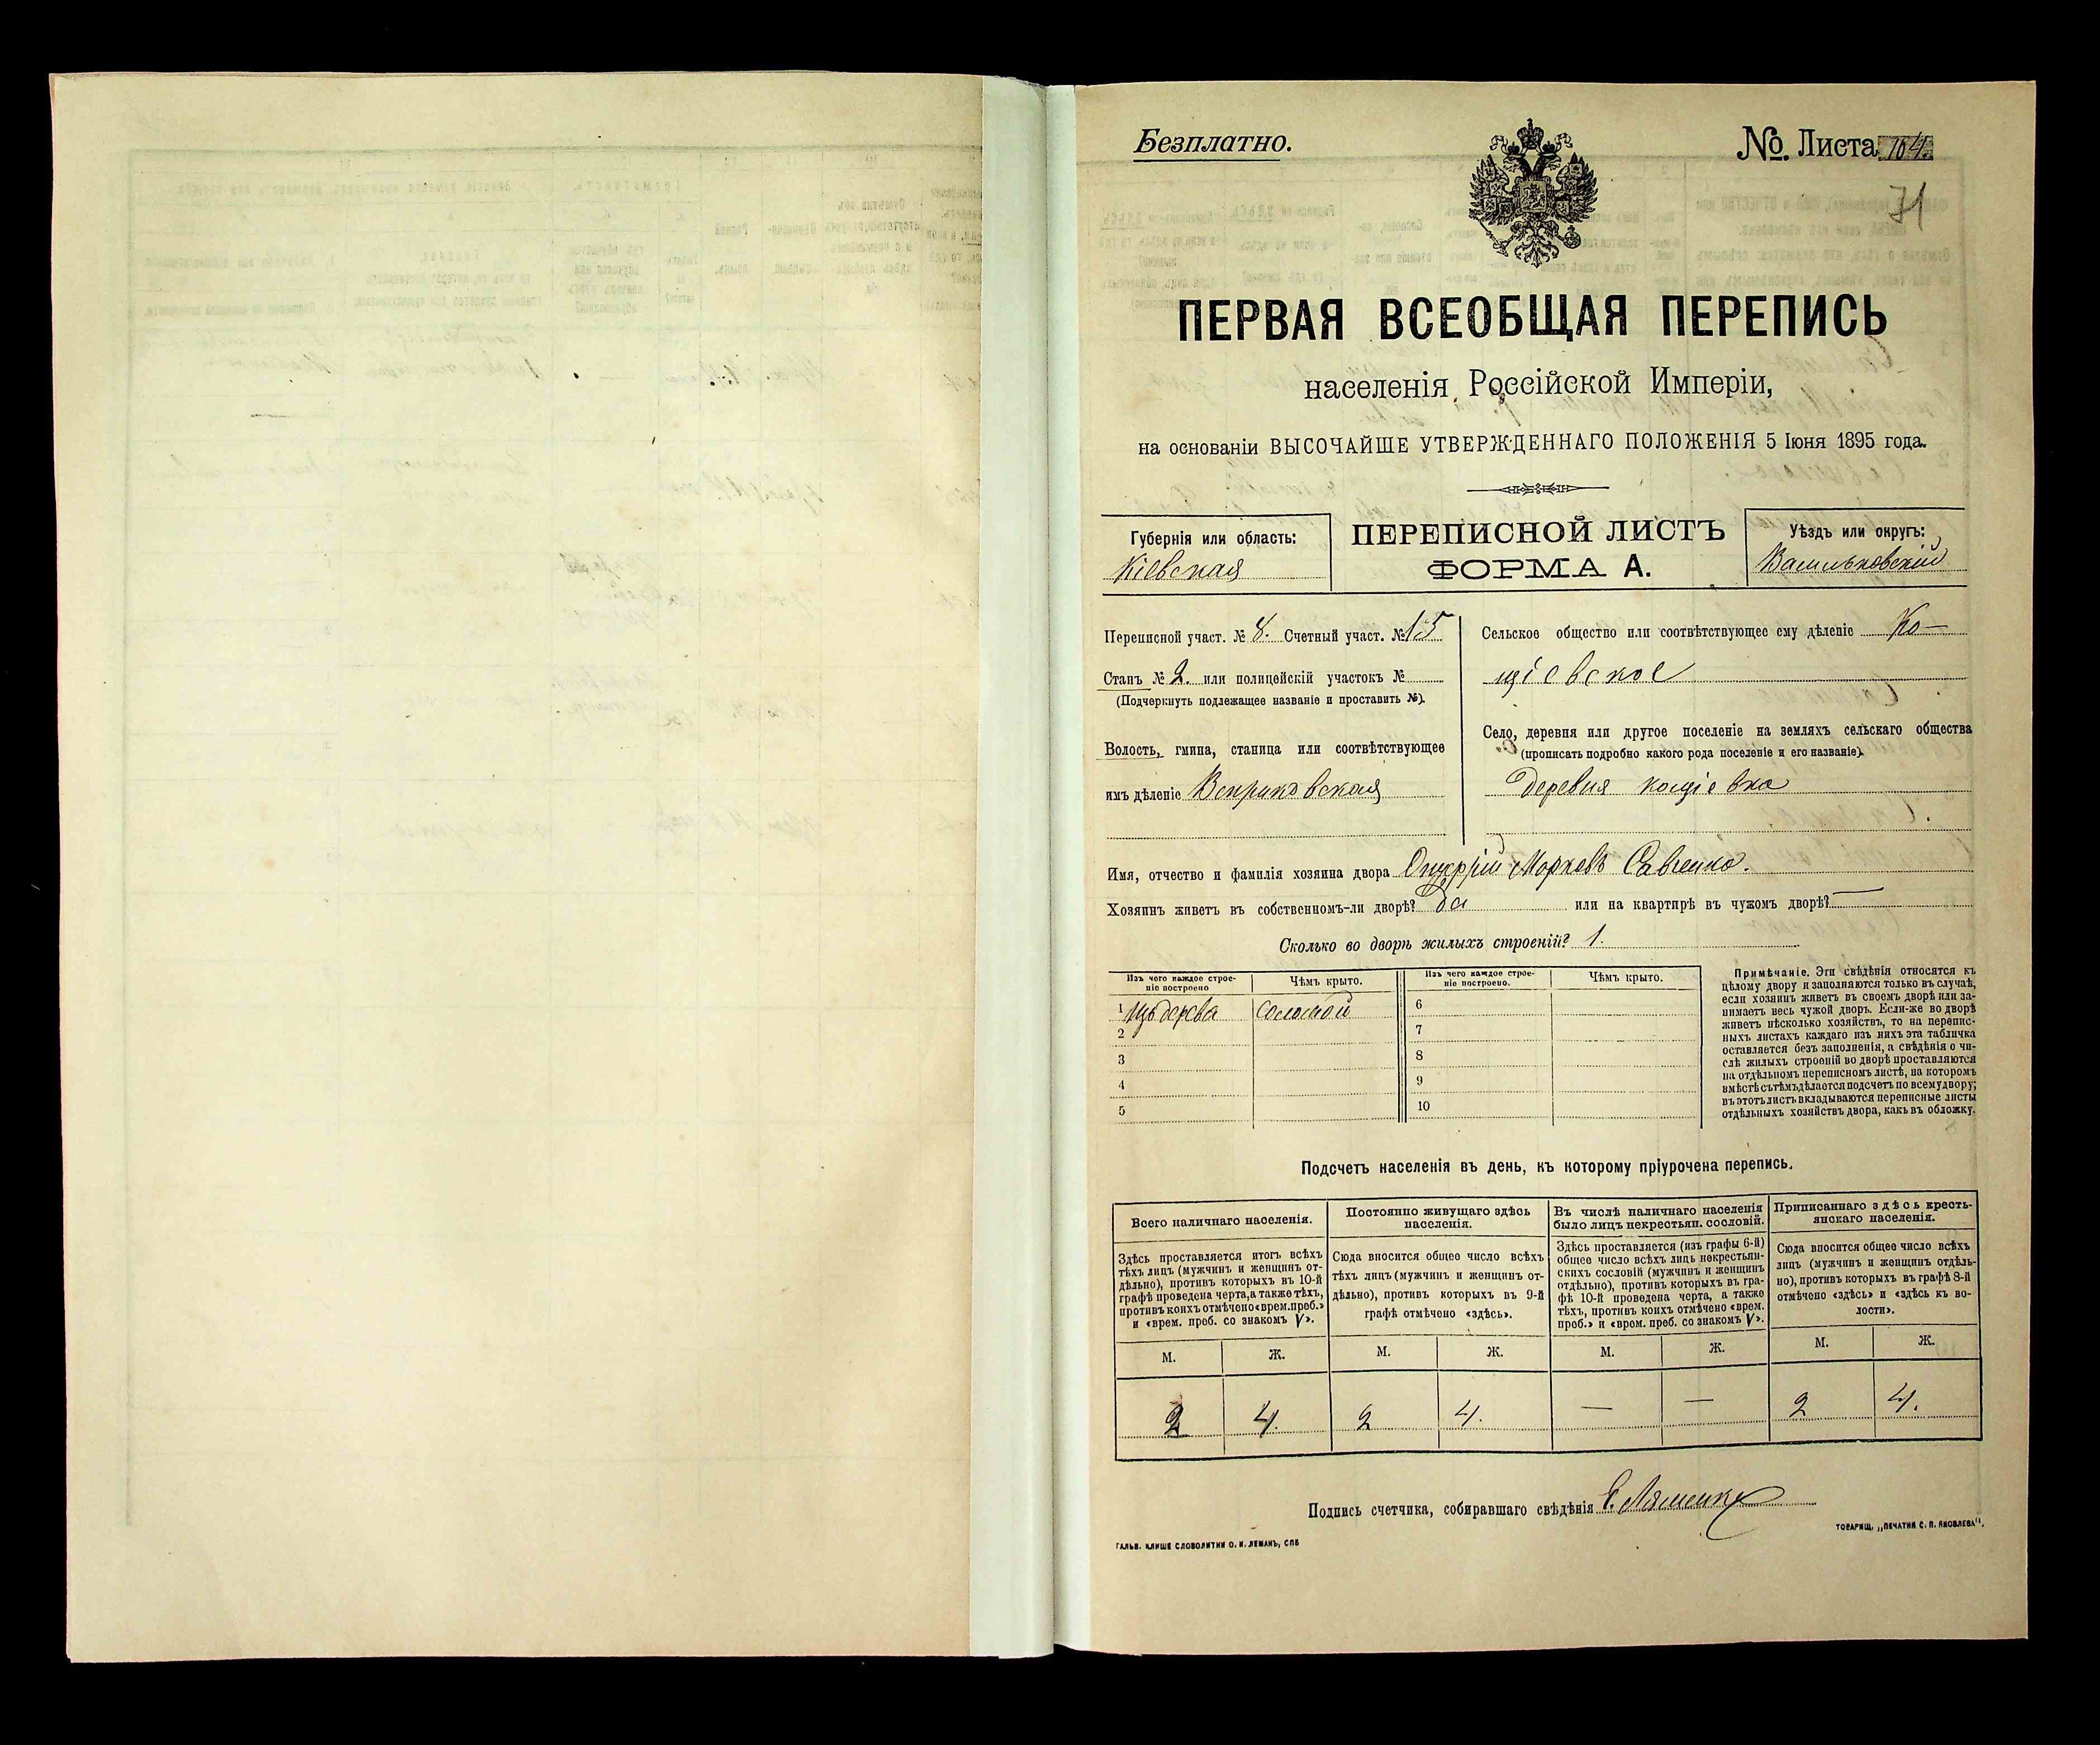 Безплатно.
№. Листа 104.
71
ПЕРВАЯ ВСЕОБЩАЯ ПЕРЕПИСЬ
населенія Россійской Имперіи,
на основаніи ВЫСОЧАЙШЕ УТВЕРЖДЕННАГО ПОЛОЖЕНІЯ 5 Іюня 1895 года.
Губернія или область:
Кіевская
ПЕРЕПИСНОЙ ЛИСТЪ
ФОРМА А.
Уѣздъ или округъ:
Васильковскій
Переписной участ. № 8. Счетный участ. № 15
Станъ № 2. или полицейскій участокъ №
(Подчеркнуть подлежащее названіе и проставить №).
Волость, гмина, станица или соотвѣтствующее
имъ дѣленіе Веприковская
Сельское общество или соотвѣтствующее ему дѣленіе Ко-
щіевское
Село, деревня или другое поселеніе на земляхъ сельскаго общества
(прописать подробно какого рода поселеніе и его названіе).
деревня кощіевка
Имя, отчество и фамилія хозяина двора Онуфрій Марковъ Савченко.
Хозяинъ живетъ въ собственномъ-ли дворѣ? Да или на квартирѣ въ чужомъ дворѣ? —
Сколько во дворѣ жилыхъ строеній? 1.
Изъ чего каждое строе-
ніе построено
Чѣмъ крыто.
Изъ чего каждое строе-
ніе построено.
Чѣмъ крыто.
1 Изъ дерева соломой
2
3
4
5
6
7
8
9
10
Примѣчаніе. Эти свѣдѣнія относятся къ
цѣлому двору и заполняются только въ случаѣ,
если хозяинъ живетъ въ своемъ дворѣ или за-
нимаетъ весь чужой дворъ. Если-же во дворѣ
живетъ нѣсколько хозяйствъ, то на перепис-
ныхъ листахъ каждаго изъ нихъ эта табличка
оставляется безъ заполненія, а свѣдѣнія о чи-
слѣ жилыхъ строеній во дворѣ проставляются
на отдѣльномъ переписномъ листѣ, на которомъ
вмѣстѣ съ тѣмъ дѣлается подсчетъ по всему двору;
въ этотъ листъ вкладываются переписные листы
отдѣльныхъ хозяйствъ двора, какъ въ обложку.
Подсчетъ населенія въ день, къ которому пріурочена перепись.
Всего наличнаго населенія.
Здѣсь проставляется итогъ всѣхъ
тѣхъ лицъ (мужчинъ и женщинъ от-
дѣльно), противъ которыхъ въ 10-й
графѣ проведена черта, а также тѣхъ,
противъ коихъ отмѣчено «врем. преб.»
и «врем. преб. со знакомъ V».
Постоянно живущаго здѣсь
населенія.
Сюда вносится общее число всѣхъ
тѣхъ лицъ (мужчинъ и женщинъ от-
дѣльно), противъ которыхъ въ 9-й
графѣ отмѣчено «здѣсь».
Въ числѣ наличнаго населенія
было лицъ некрестьян. сословій.
Здѣсь проставляется (изъ графы 6-й)
общее число всѣхъ лицъ некрестьян-
скихъ сословій (мужчинъ и женщинъ
отдѣльно), противъ которыхъ въ гра-
фѣ 10-й проведена черта, а также
тѣхъ, противъ коихъ отмѣчено «врем.
преб.» и «врем. преб. со знакомъ V».
Приписаннаго здѣсь кресть-
янскаго населенія.
Сюда вносится общее число всѣхъ
лицъ (мужчинъ и женщинъ отдѣль-
но), противъ которыхъ въ графѣ 8-й
отмѣчено «здѣсь» и «здѣсь къ во-
лости».
М. Ж. М. Ж. М. Ж. М. Ж.
2 4. 2 4. — — 2 4.
Подпись счетчика, собиравшаго свѣдѣнія Е. Ляшенко
ГАЛЬВ. КЛИШЕ СЛОВОЛИТНИ О. И. ЛЕМАНЪ, СПБ
ТОВАРИЩ. „ПЕЧАТНИ С. П. ЯКОВЛЕВА“.